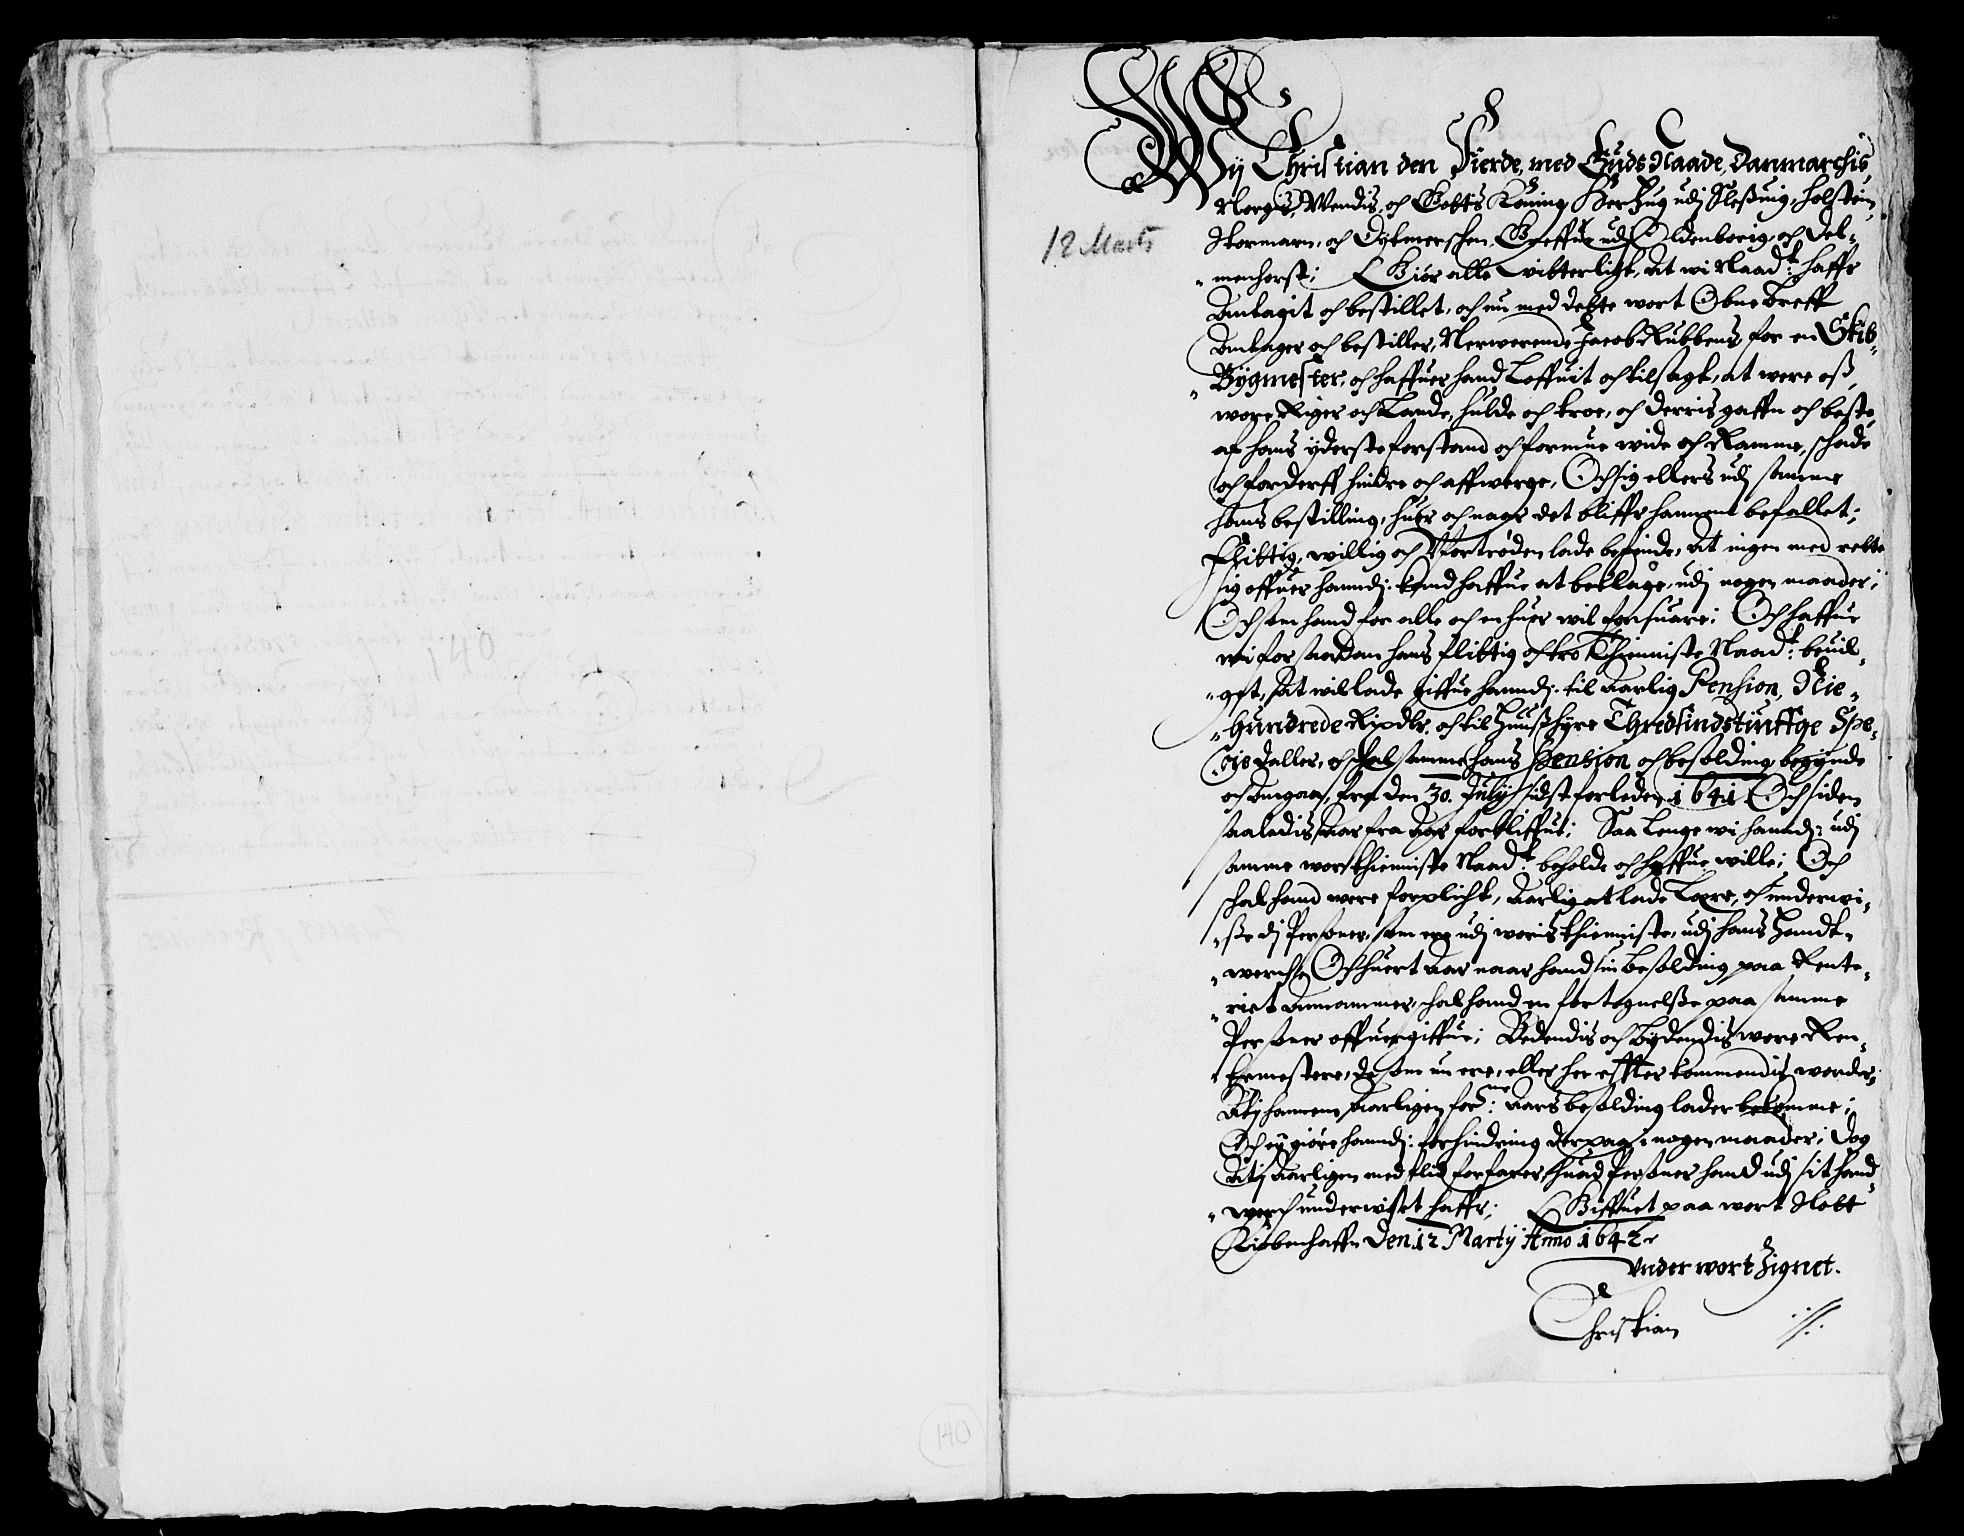 Wij Christian den Fierde, med Guds Naade, Danmarchis,
Norgis, Wendis, och Gottis Koning, Hertzug udj Sleßuig, Holstein,
12 Marts
Stormarn, och Dytmerschen, Greffue udj Oldenborig, och Del-
menhorst; Giör alle witterligt, at wi Naad:t haffr
Antagit och bestillet, och nu med dette wort Obne breff
Antager och bestiller, Nerwerende Jacob Rubbens for en Skib-
Bÿgmester, och haffuer hand Loffuit och tilsagt, at were oß,
wore Riger och Lande, huld och troe, och derris gaffn och beste,
af hans yderste forstand och formue wide och Ramme, schade
och forderff hindre och affwerge, Och sig ellers udj samme
hans bestilling, huer och naar det bliffr hannem befallet;
Flittig, willig och Wfortröden lade befinde, at ingen med rette
sig offuer hannd: kand haffue at beklage, udj nogen maader;
Och som hand for alle och en huer wil forsuare; Och haffue
wi for saadan hans flittig och tro Thienniste Naad:t beuil-
get, at wil lade giffue hannd: til Aarlig Pension, Nie-
hundrede Rixdlr. och til Huußhyre Thredsindstiuffge Spe-
cie daller, och schal samme hans Pension och besolding begynde
och angaa, fra den 30. Julij sidst forleden 1641 Och siden
saaledis aar fra aar forbliffue; Saa lenge wi hannd: udj
samme wors thienniste Naad:t beholde och haffue wille; Och
schal hand were forplicht, Aarlig at lade Lære, och underwi-
ße dj Personer, som ere udj woris thienniste, udj hans Handt-
werch, Och huert Aar naar hand sin besolding paa Rente-
riet annammer, schal hand en fortegnelße paa samme
Personer offuergiffue; Bedendis och Bydendis wore Ren-
temestere, de som nu ere, eller her effter kommendis worder,
At i hannem Aarligen for:ne Aars besolding lader bekomme;
Och ey giöre hannd: forhindring derpaa i nogen maader; Dog
At i Aarligen med flid forfarer, huad Personer hand udj sit hand-
werch underwist haffr; Giffuet paa wort Slott
Kiöbenhaffn Den 12 Martij Anno 1642
Under wort Zignet.
Christian
140